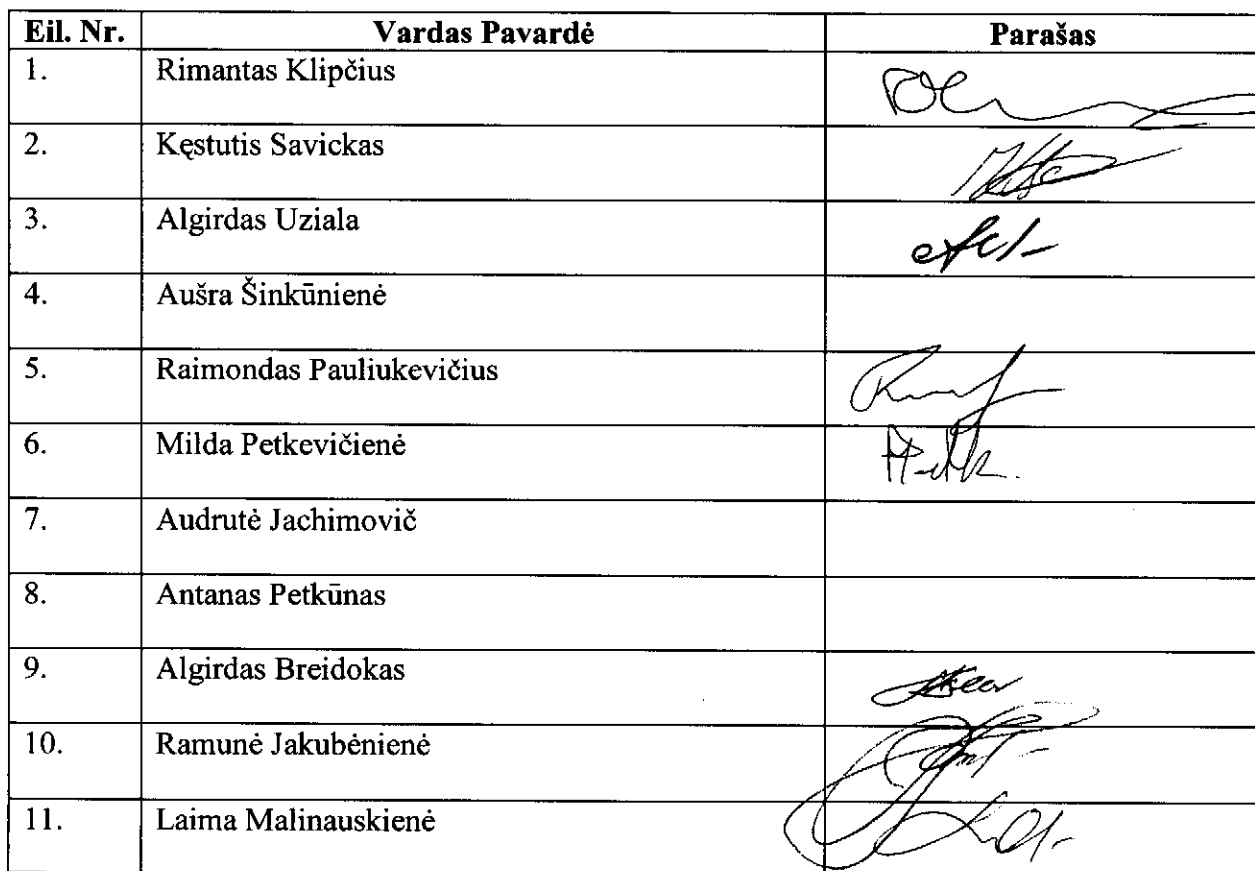 Eil. Nr. Vardas Pavardė Parašas
1. Rimantas Klipčius
2. Kęstutis Savickas
3. Algirdas Uziala
4. Aušra Šinkūnienė
5. Raimondas Pauliukevičius
6. Milda Petkevičienė
7. Audrutė Jachimovič
8. Antanas Petkūnas
9. Algirdas Breidokas
10. Ramunė Jakubėnienė
11. Laima Malinauskienė